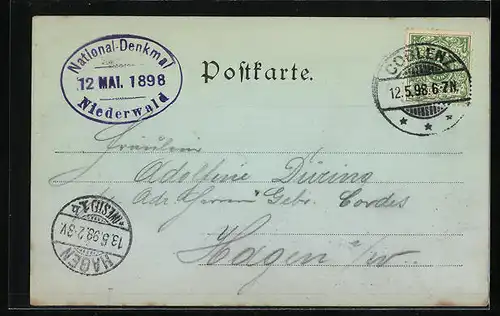 National-Denkmal
12 MAI. 1898
Niederwald
Postkarte.
COBLENZ
12.5.98.6-7N.
* * *
Fräulein
Adelfine Düring
Adr. Herren Gebr. Cordes
Hagen i/W.
HAGEN
13.5.98.2-3V
(WESTF.)